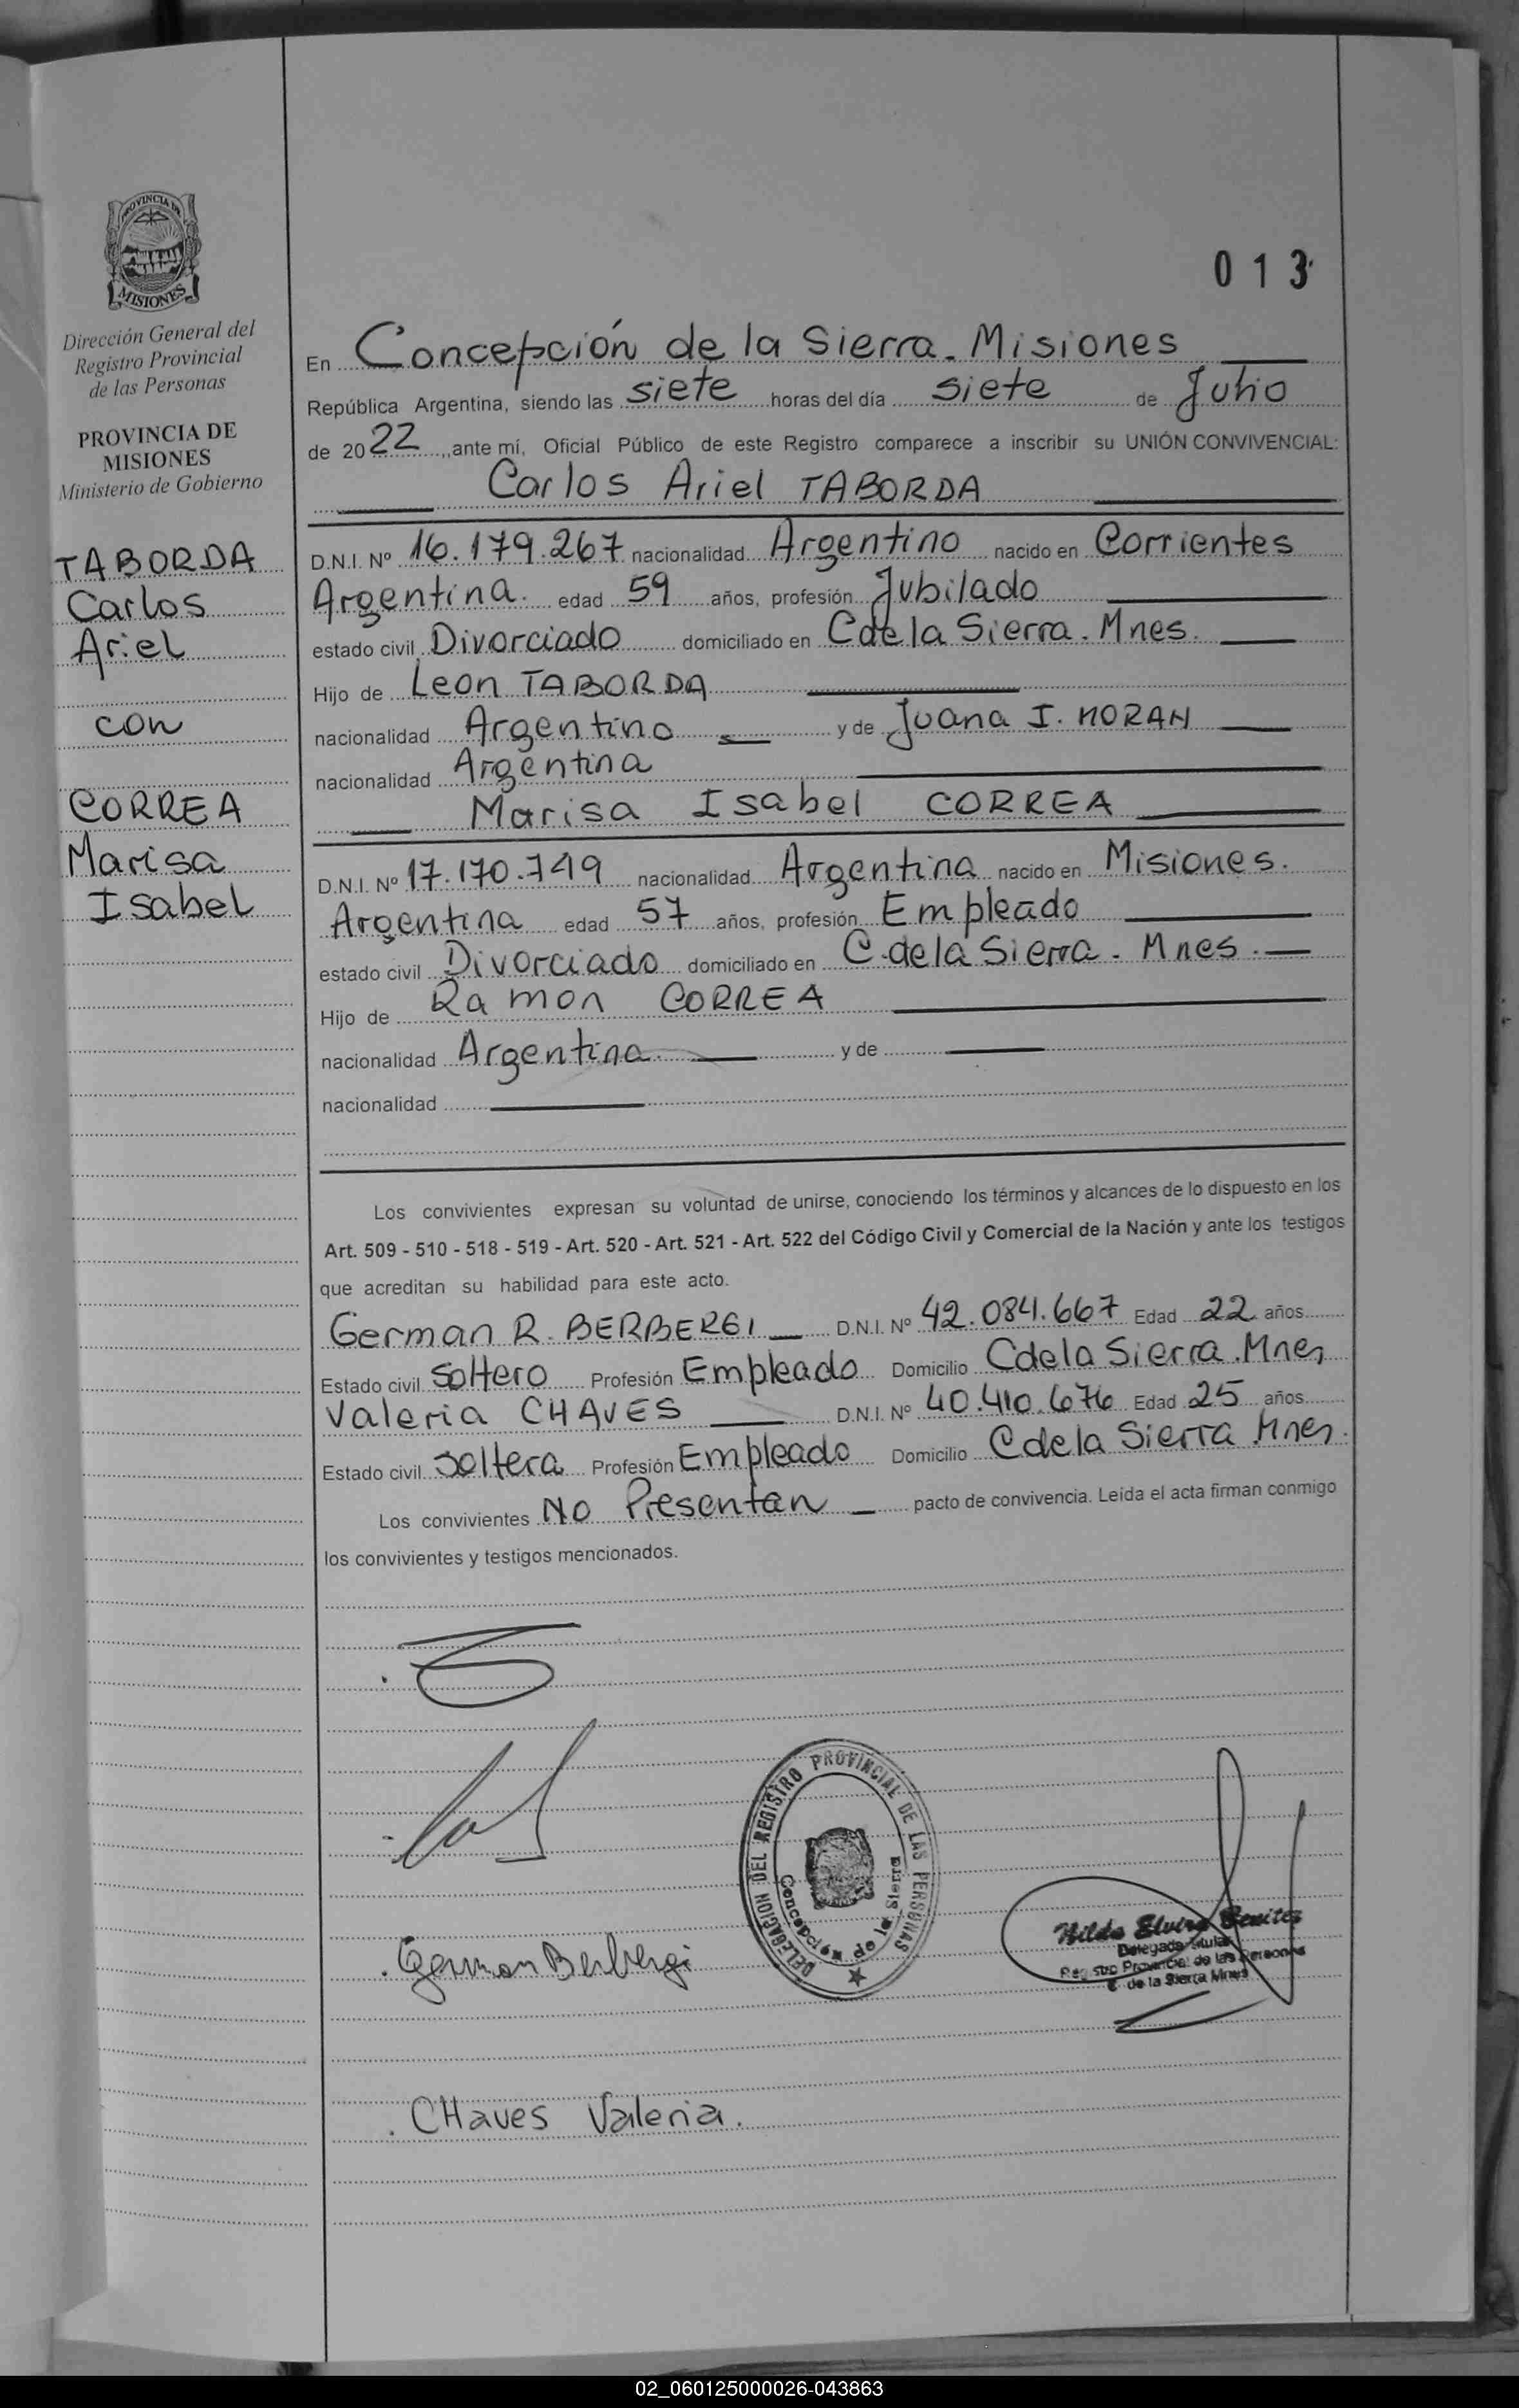 PROVINCIA DE
MISIONES
Dirección General del
Registro Provincial
de las Personas
PROVINCIA DE
MISIONES
Ministerio de Gobierno
TABORDA
Carlos
Ariel
con
CORREA
Marisa
Isabel
013
En Concepción de la Sierra. Misiones
República Argentina, siendo las siete horas del día siete de Julio
de 2022, ante mí, Oficial Público de este Registro comparece a inscribir su UNIÓN CONVIVENCIAL:
Carlos Ariel TABORDA
D.N.I. Nº 16.179.267 nacionalidad Argentino nacido en Corrientes
Argentina. edad 59 años, profesión Jubilado
estado civil Divorciado domiciliado en C de la Sierra. Mnes.
Hijo de Leon TABORDA
nacionalidad Argentino y de Juana I. MORAN
nacionalidad Argentina
Marisa Isabel CORREA
D.N.I. Nº 17.170.749 nacionalidad Argentina nacido en Misiones.
Argentina edad 57 años, profesión Empleado
estado civil Divorciado domiciliado en C. de la Sierra. Mnes.
Hijo de Ramon CORREA
nacionalidad Argentina. y de
nacionalidad
Los convivientes expresan su voluntad de unirse, conociendo los términos y alcances de lo dispuesto en los
Art. 509 - 510 - 518 - 519 - Art. 520 - Art. 521 - Art. 522 del Código Civil y Comercial de la Nación y ante los testigos
que acreditan su habilidad para este acto.
German R. BERBERGI D.N.I. Nº 42.084.667 Edad 22 años
Estado civil Soltero Profesión Empleado Domicilio C de la Sierra. Mnes
Valeria CHAVES D.N.I. Nº 40.410.676 Edad 25 años
Estado civil Soltera Profesión Empleado Domicilio C de la Sierra. Mnes.
Los convivientes No Presentan pacto de convivencia. Leída el acta firman conmigo
los convivientes y testigos mencionados.
DELEGACION DEL REGISTRO PROVINCIAL DE LAS PERSONAS
Concepción de la Sierra
German Berbergi
Hilda Elvira Benitez
Delegada Titular
Registro Provincial de las Personas
C. de la Sierra Mnes
CHaves Valeria.
02_060125000026-043863